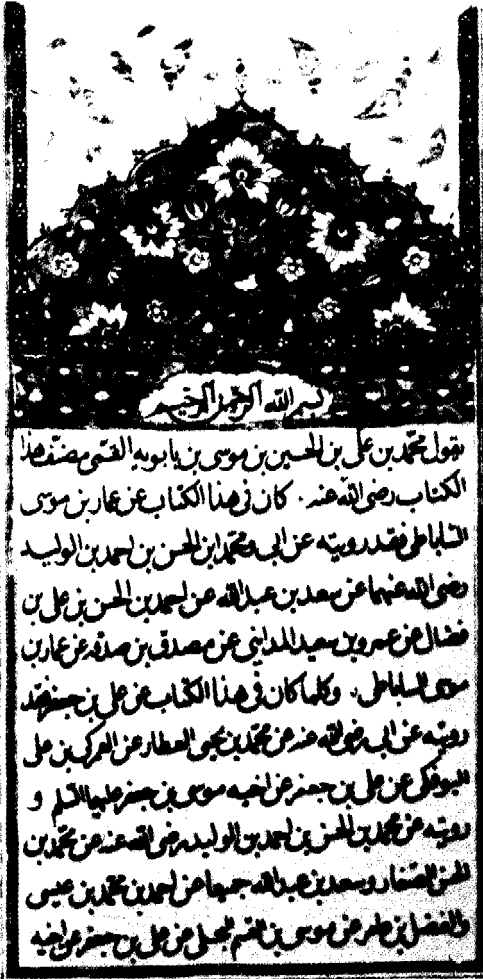 بسم الله الرحمن الرحيم
يقول محمد بن على بن الحسين بن موسى بن بابويه القمى مصنف هذا
الكتاب رضى الله عنه . كان فى هذا الكتاب عن عمار بن موسى
الساباطى فقد رويته عن ابى ومحمد ابن الحسن بن احمد بن الوليد
رضى الله عنهما عن سعد بن عبد الله عن احمد بن الحسن بن على بن
فضال عن عمرو بن سعيد المدائنى عن مصدق بن صدقه عن عمار بن
موسى الساباطى . وكلما كان فى هذا الكتاب عن على بن جعفر فقد
رويته عن ابى رضى الله عنه عن محمد بن يحيى العطار عن العمركى بن على
البوفكى عن على بن جعفر عن اخيه موسى بن جعفر عليهما السلم و
رويته عن محمد بن الحسن بن احمد بن الوليد رضى الله عنه عن محمد بن
الحسن الصفار وسعد بن عبد الله جميعا عن احمد بن محمد بن عيسى
والفضل بن عامر عن موسى بن القسم البجلى عن على بن جعفر عن اخيه